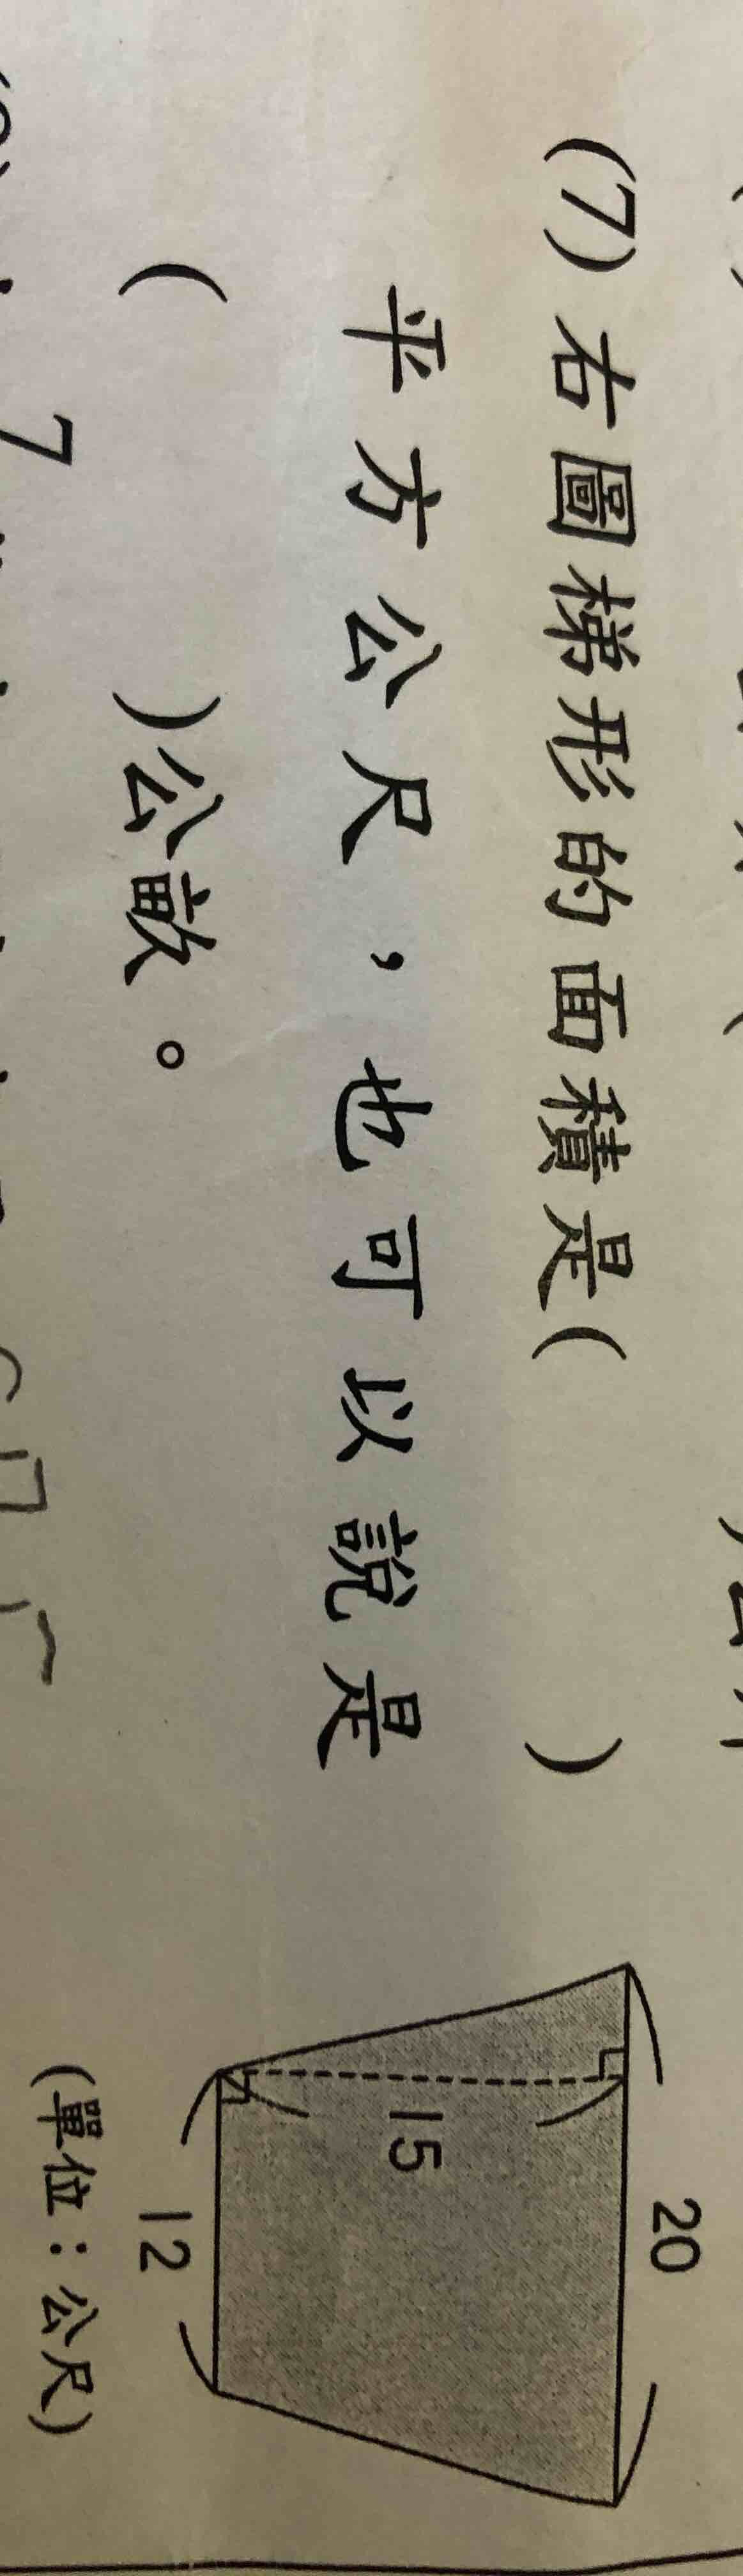 (7) 右圖梯形的面積是( )
平方公尺，也可以說是
( )公畝。
20
15
12
(單位：公尺)